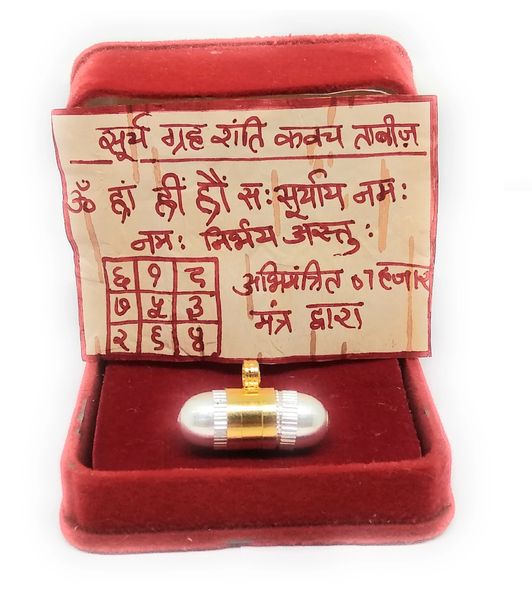 सूर्य ग्रह शांति कवच ताबीज़
ॐ ह्रां ह्रीं ह्रौं सः सूर्याय नमः
नमः निर्भय अस्तुः
६ १ ८
७ ५ ३
२ ९ ४
अभिमंत्रित ७ हजार
मंत्र द्वारा